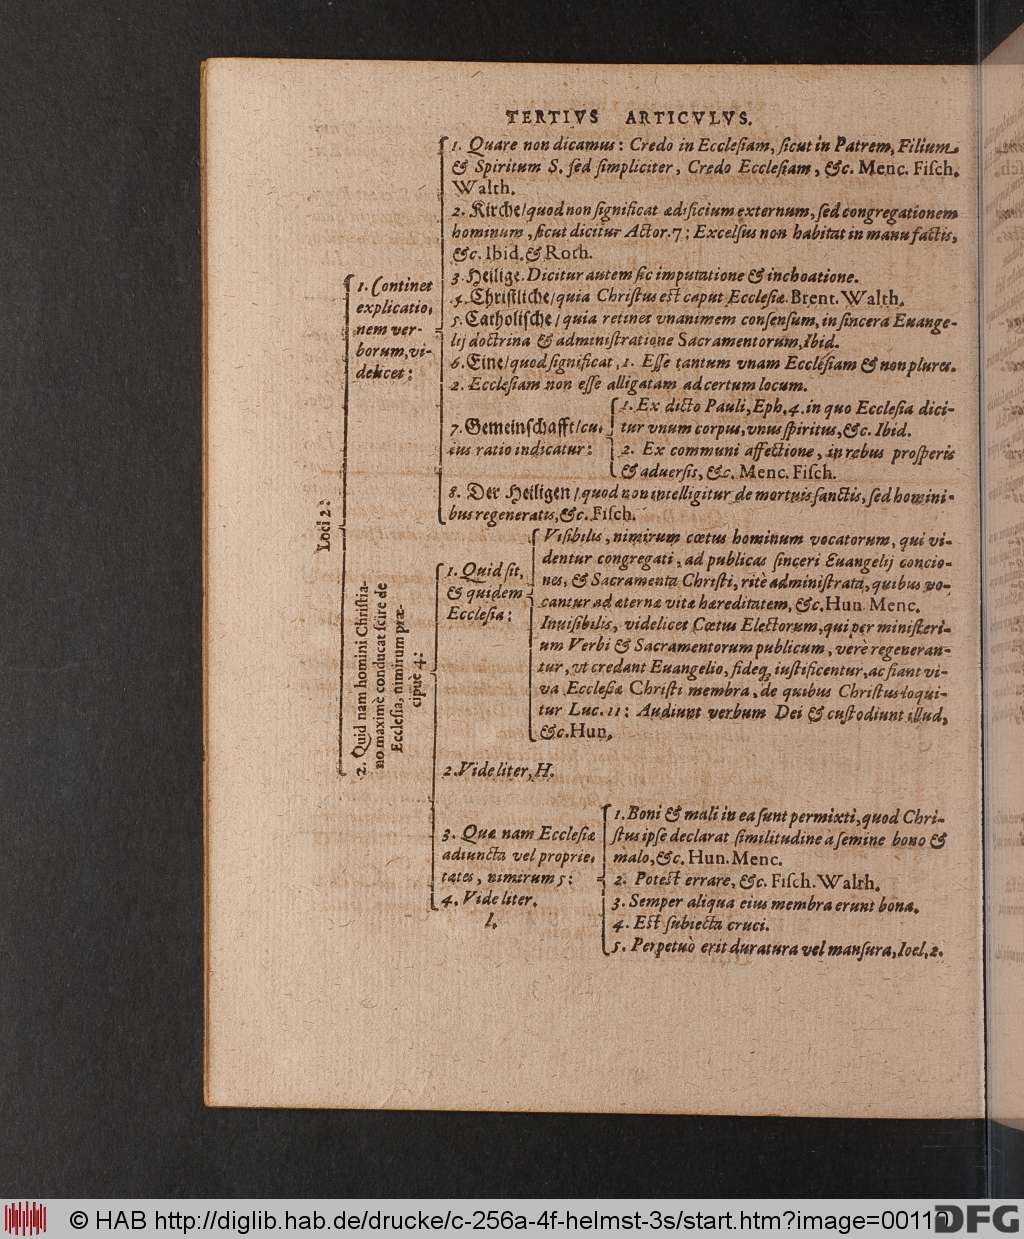 TERTIVS ARTICVLVS.
Loci 2:
1. Continet
explicatio,
nem ver-
borum, vi-
delicet:
1. Quare non dicamus: Credo in Ecclesiam, sicut in Patrem, Filium
& Spiritum S. sed simpliciter, Credo Ecclesiam, &c. Menc. Fisch.
Walth.
2. Kirche/ quod non significat ædificium externum, sed congregationem
hominum, sicut dicitur Actor. 7: Excelsus non habitat in manu factis,
&c. Ibid. & Roth.
3. Heilige. Dicitur autem sic imputatione & inchoatione.
4. Christliche/ quia Christus est caput Ecclesiæ. Brent. Walth.
5. Catholische/ quia retinet vnanimem consensum, in sincera Euange-
lij doctrina & administratione Sacramentorum, Ibid.
6. Eine/ quod significat, 1. Esse tantum vnam Ecclesiam & non plures.
2. Ecclesiam non esse alligatam ad certum locum.
7. Gemeinschafft/ cu,
ius ratio indicatur:
1. Ex dicto Pauli, Eph. 4. in quo Ecclesia dici-
tur vnum corpus, vnus spiritus, &c. Ibid.
2. Ex communi affectione, in rebus prosperis
& aduersis, &c. Menc. Fisch.
8. Der Heiligen/ quod non intelligitur de mortuis sanctis, sed homini-
bus regeneratis, &c. Fisch.
2. Quid nam homini Christia-
no maximè conducat scire de
Ecclesia, nimirum præ-
cipuè 4:
1. Quid sit,
& quidem
Ecclesia:
Visibilis, nimirum cœtus hominum vocatorum, qui vi-
dentur congregati, ad publicas sinceri Euangelij concio-
nes, & Sacramenta Christi, ritè administrata, quibus vo-
cantur ad æternæ vitæ hæreditatem, &c. Hun. Menc.
Inuisibilis, videlicet Cœtus Electorum, qui per ministeri-
um Verbi & Sacramentorum publicum, verè regeneran-
tur, vt credant Euangelio, fideq́; iustificentur, ac fiant vi-
va Ecclesiæ Christi membra, de quibus Christus loqui-
tur Luc. 11: Audiunt verbum Dei & custodiunt illud,
&c. Hun.
2. Vide liter, H.
3. Quæ nam Ecclesiæ
adiuncta vel proprie,
tates, nimirum 5:
1. Boni & mali in ea sunt permixti, quod Chri-
stus ipse declarat similitudine a semine bono &
malo, &c. Hun. Menc.
2. Potest errare, &c. Fisch. Walth.
3. Semper aliqua eius membra erunt bona.
4. Est subiecta cruci.
5. Perpetuò erit duratura vel mansura, Ioel, 2.
4. Vide liter.
I.
© HAB http://diglib.hab.de/drucke/c-256a-4f-helmst-3s/start.htm?image=00110
DFG